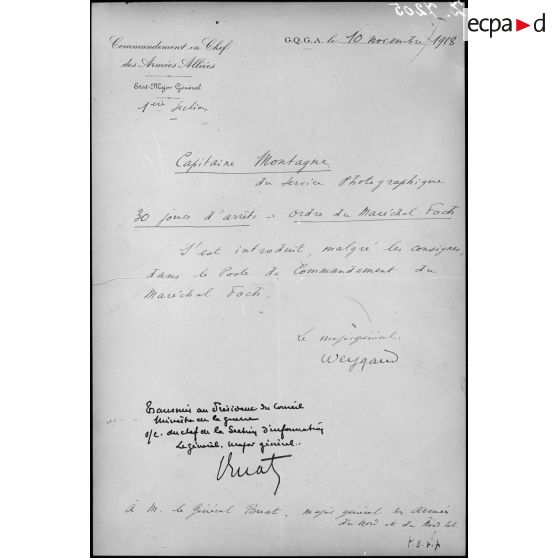 ecpad
Commandement en Chef
des Armées Alliées
G.Q.G.A. le 10 novembre 1918
État-Major Général
1ère Section
Capitaine Montagne
du Service Photographique
30 jours d'arrêts - ordre du Maréchal Foch
S'est introduit, malgré les consignes,
dans le Poste de Commandement du
Maréchal Foch.
Le major général.
Weygand
Transmis au Président du Conseil
Ministre de la guerre
s/c. du chef de la Section d'information
Le général, major général.
Buat
à M. le Général Buat, major général des Armées
du Nord et du Nord Est